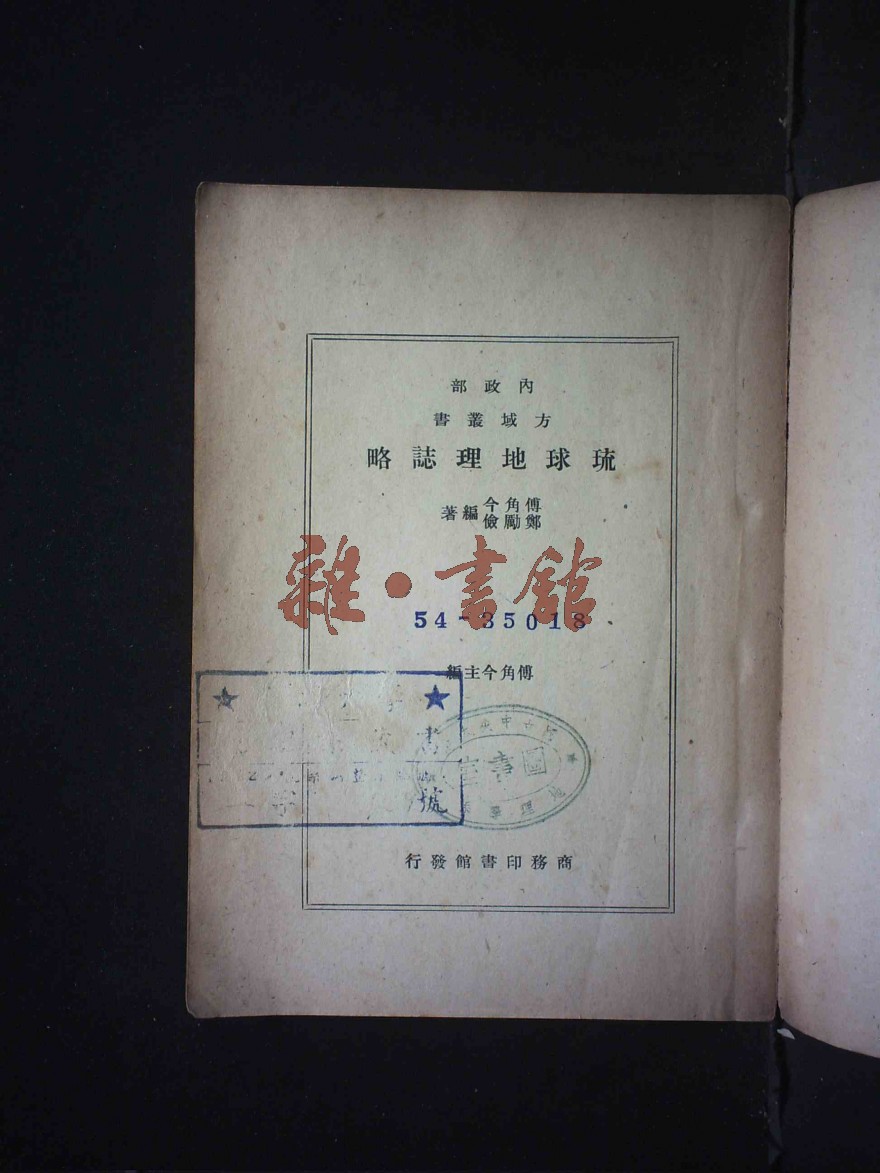 內政部
方域叢書
琉球地理誌略
傅角今
鄭勵儉
編著
雜·書館
54-35018
傅角今主編
圖書室
號
商務印書館發行